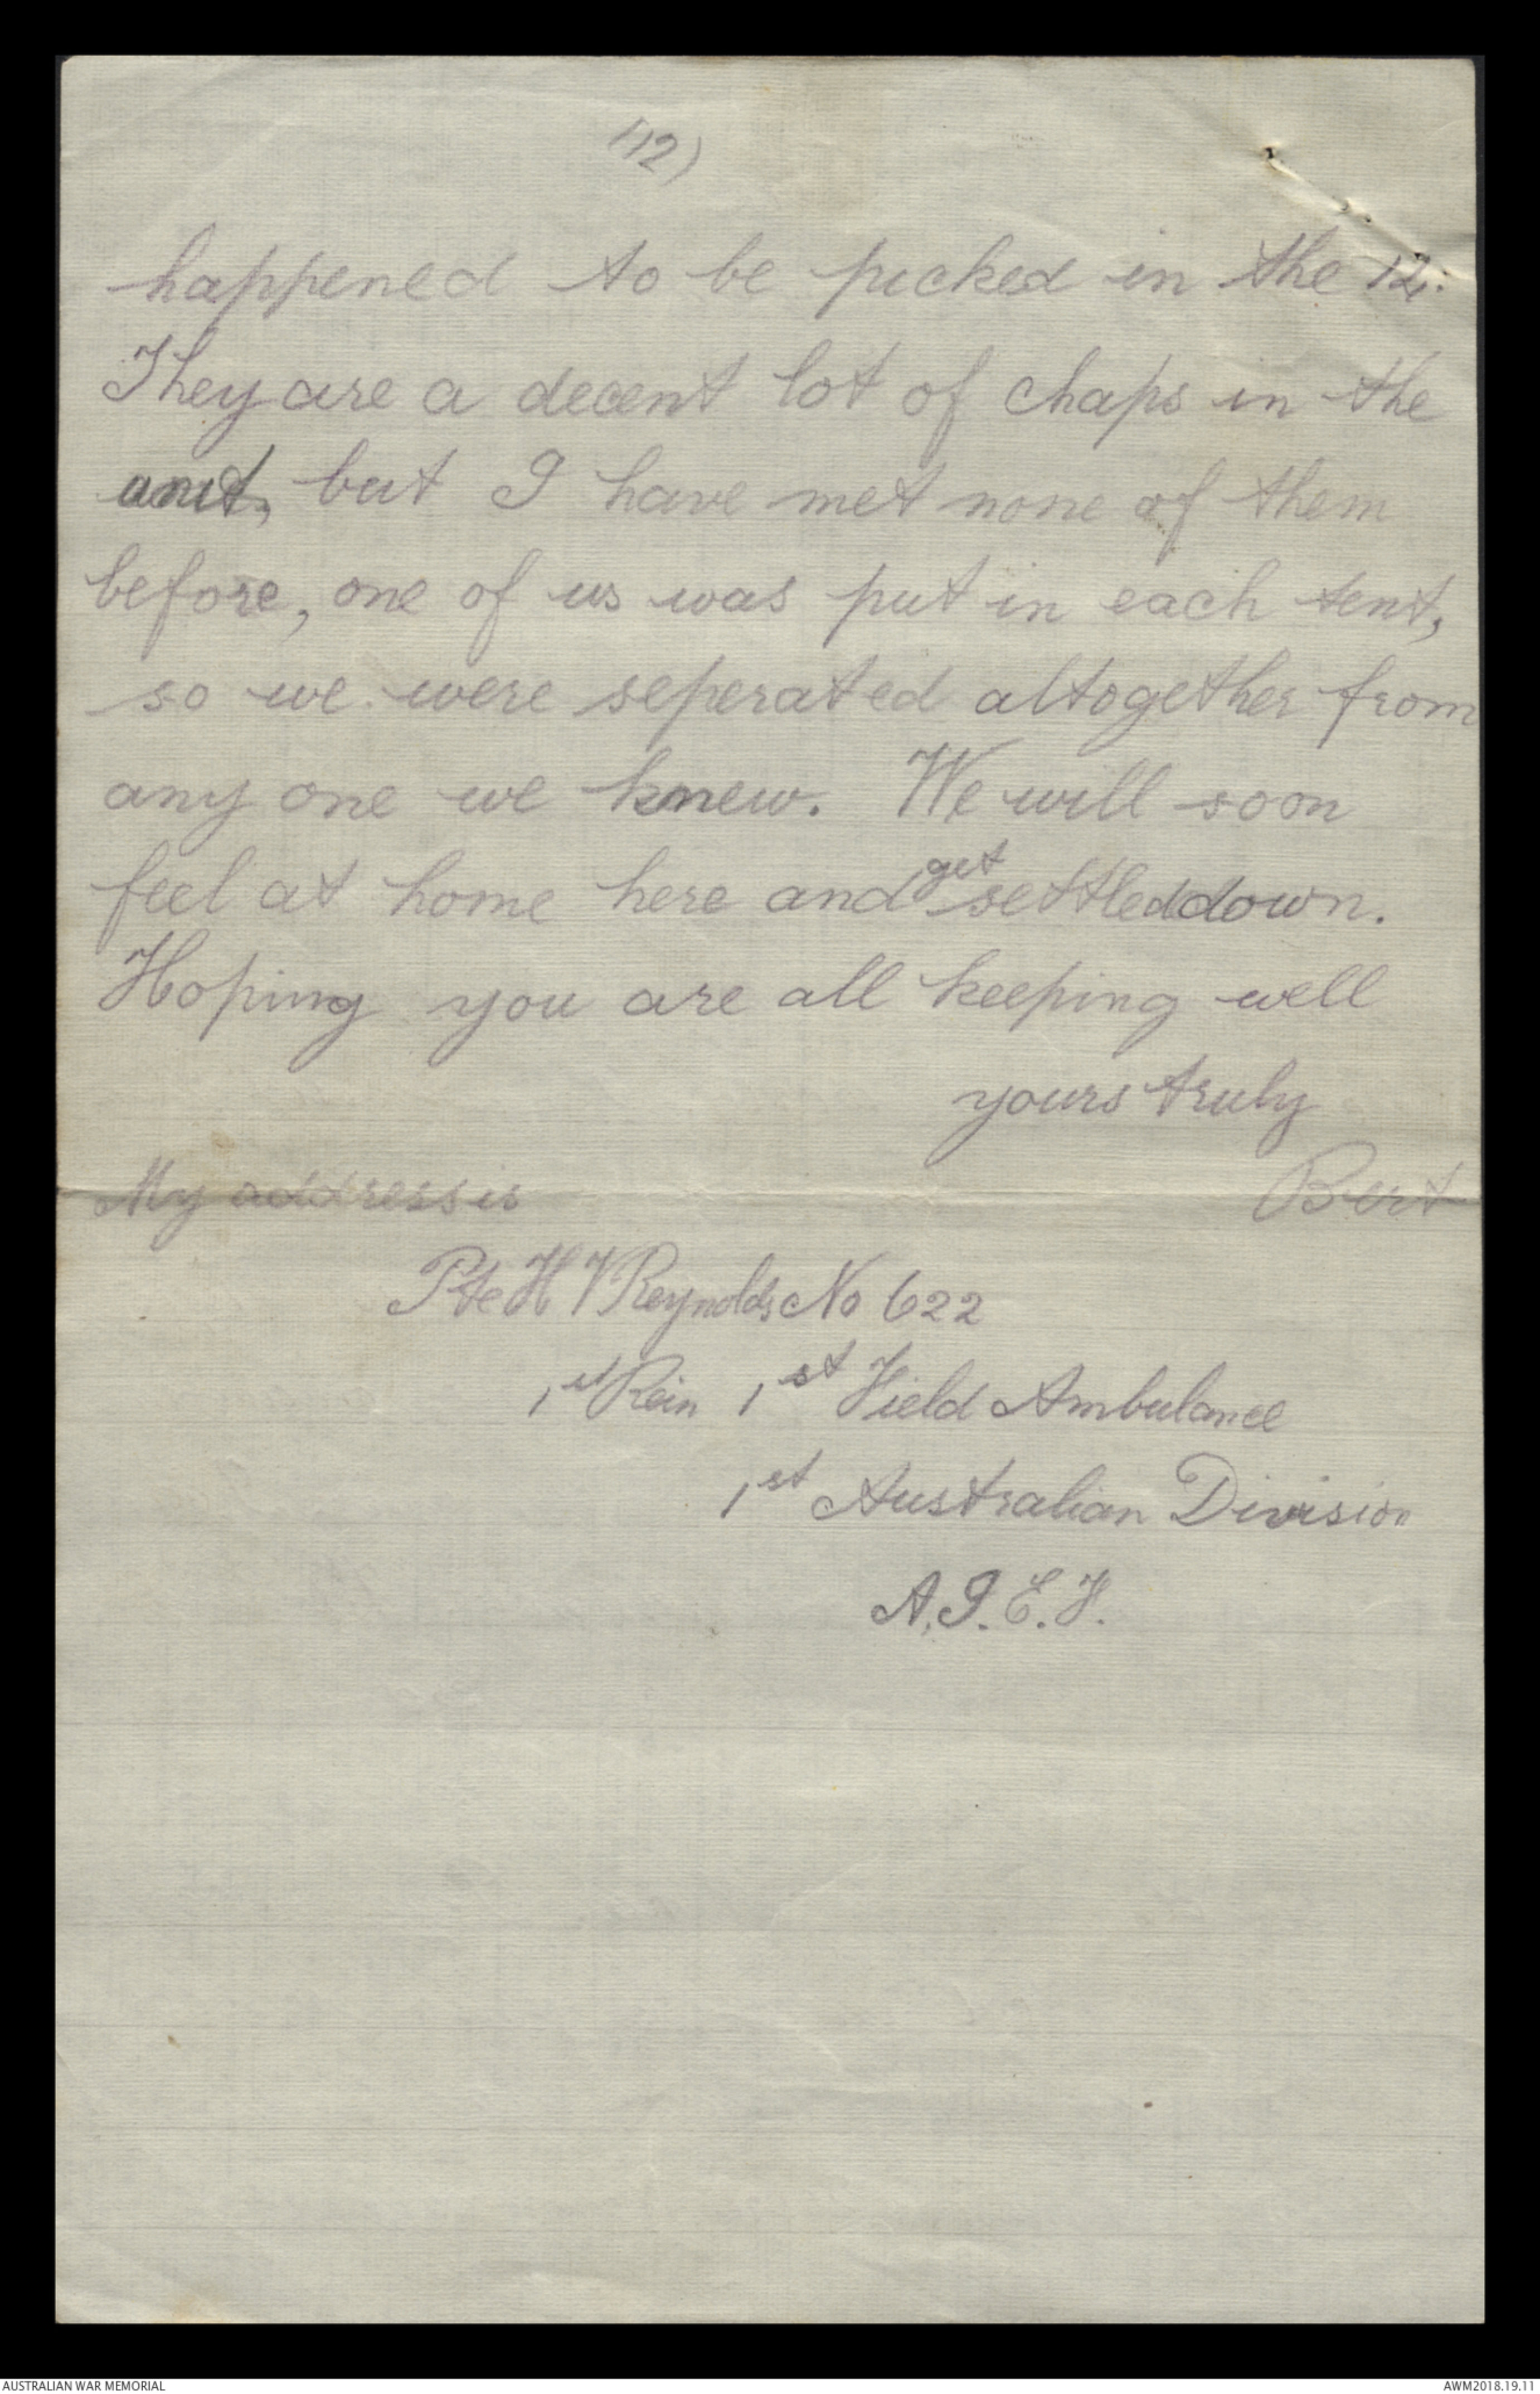 (12)
happened to be picked in the 12.
They are a decent lot of chaps in the
unit, but I have met none of them
before, one of us was put in each tent,
so we were seperated altogether from
any one we knew. We will soon
feel at home here and get settled down.
Hoping you are all keeping well
yours truly
Bert
My address is
Pte H V Reynolds No 622
1st Rein 1st Field Ambulance
1st Australian Division
A.I.E.F.
AUSTRALIAN WAR MEMORIAL
AWM2018.19.11